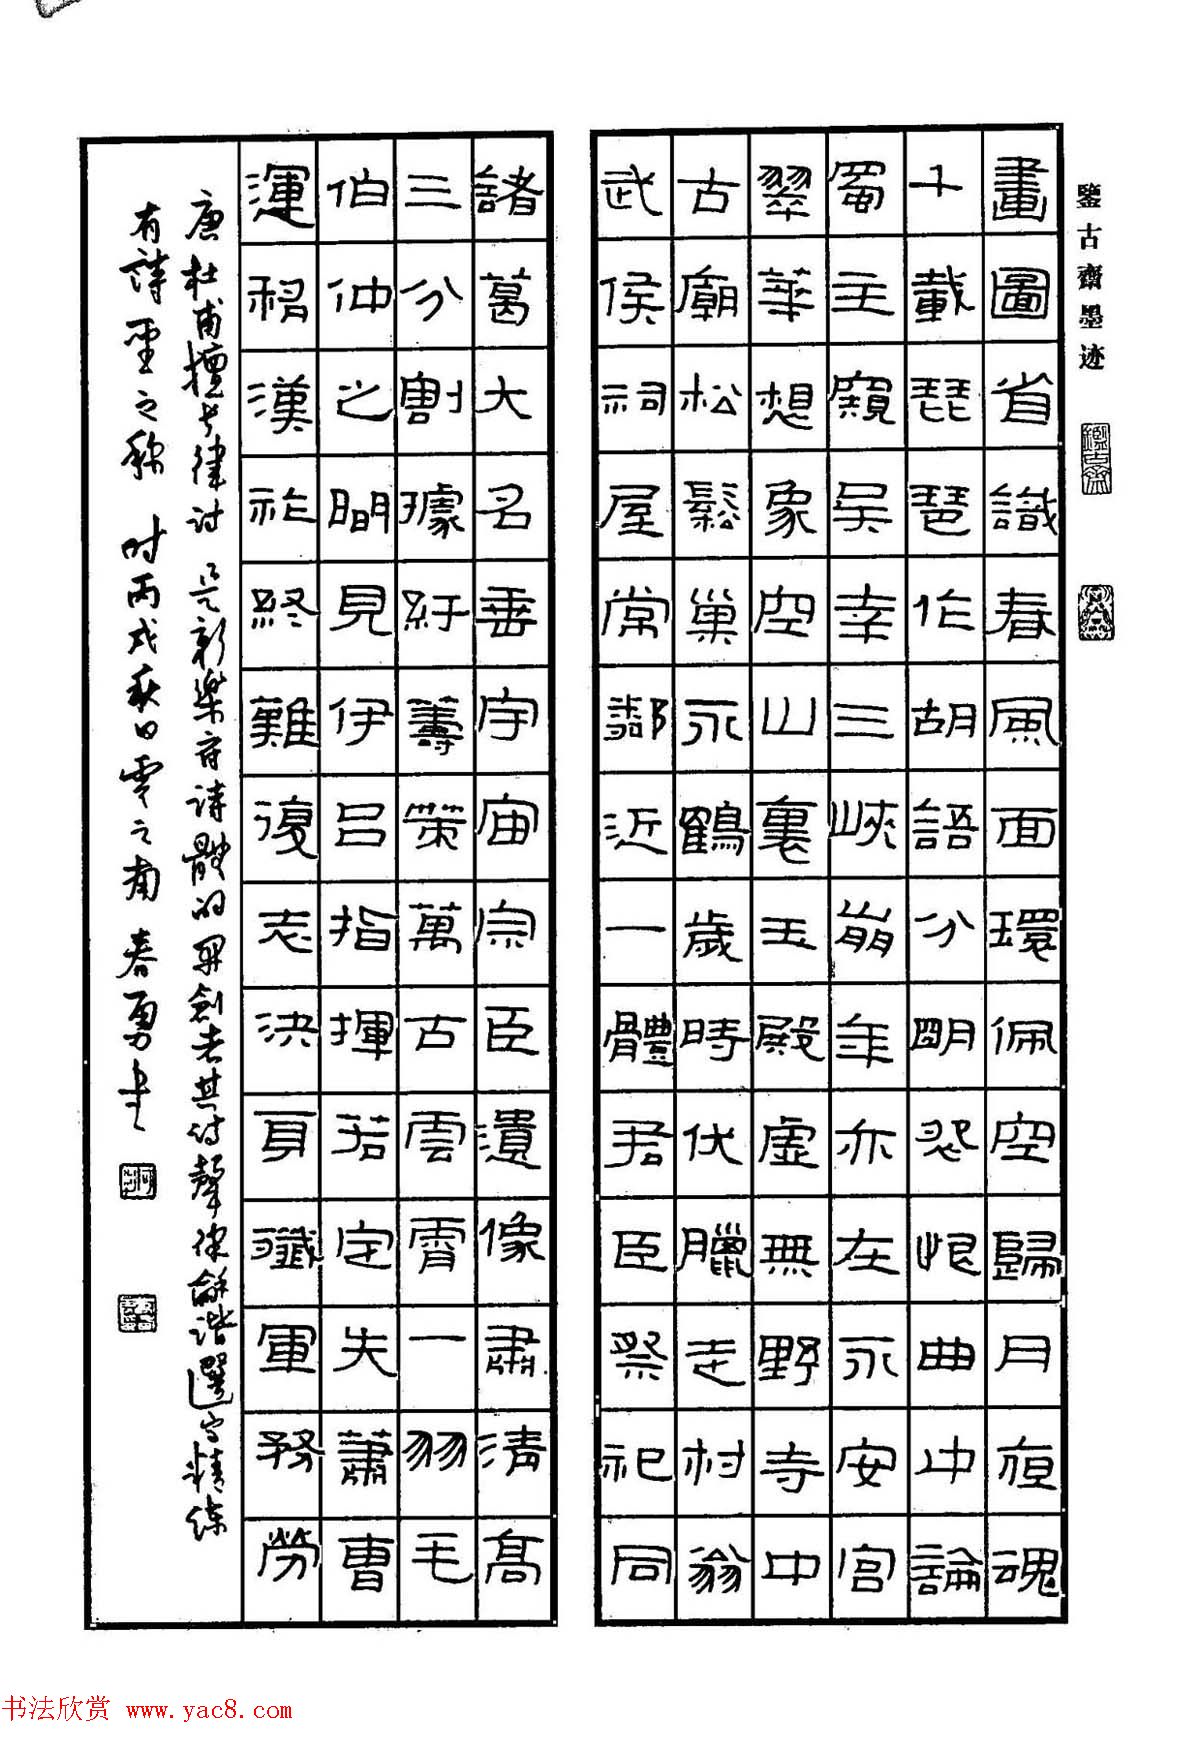 鑒古齋墨迹
畫圖省識春風面環佩空歸月夜魂
千載琵琶作胡語分明怨恨曲中論
蜀主窺吳幸三峽崩年亦在永安宮
翠華想象空山裏玉殿虛無野寺中
古廟松鬆巢永鶴歲時伏臘走村翁
武侯祠屋常鄰近一體君臣祭祀同
諸葛大名垂宇宙宗臣遺像肅清高
三分割據紆籌策萬古雲霄一羽毛
伯仲之間見伊呂指揮若定失蕭曹
運移漢祚終難復志決身殲軍務勞
唐杜甫擅長律詩 是新樂府詩體的開創者其詩聲律龢諧選字精練
有詩聖之稱 時丙戌秋日雯之甫春勇書
书法欣赏 www.yac8.com